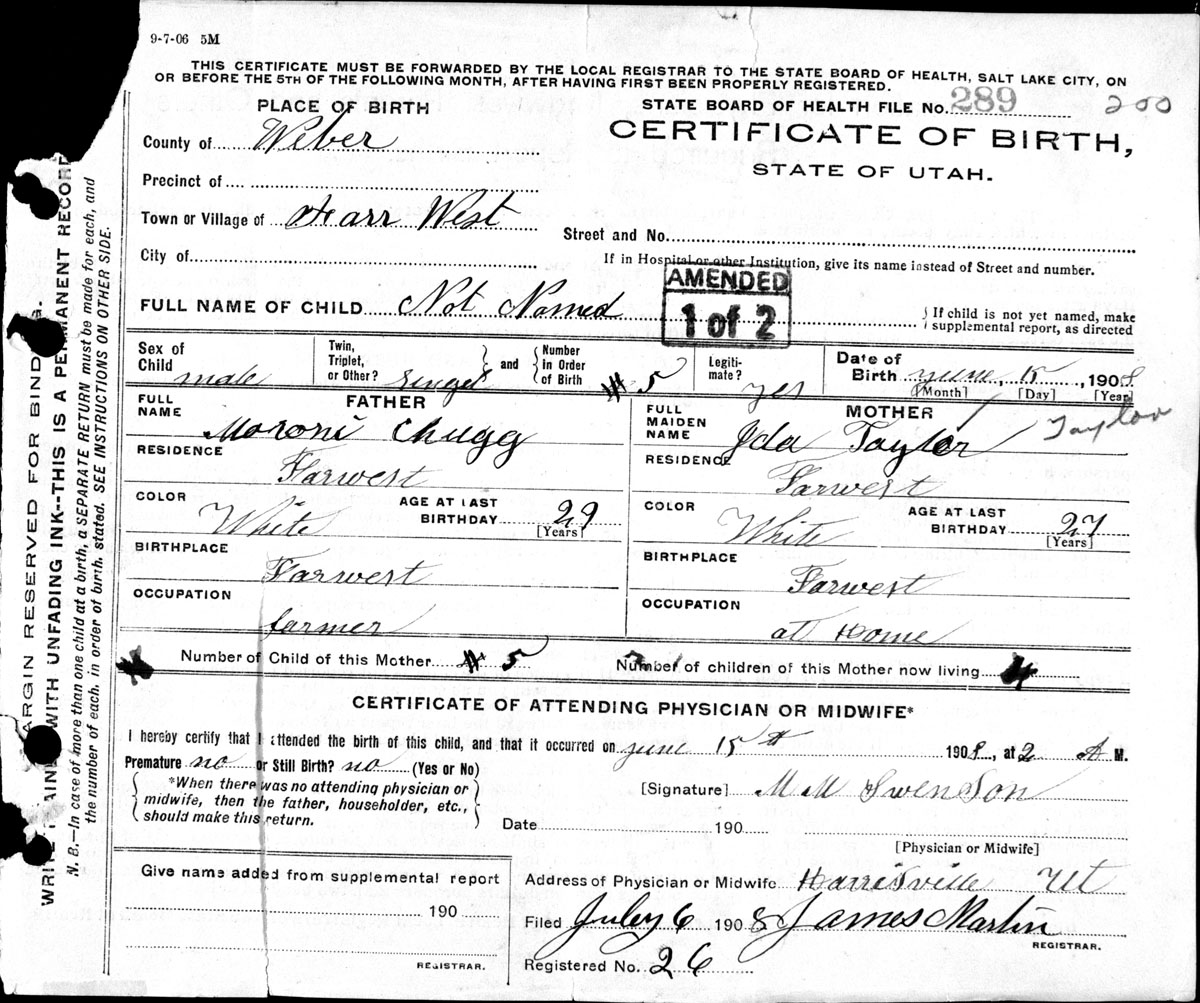 9-7-06 5M
THIS CERTIFICATE MUST BE FORWARDED BY THE LOCAL REGISTRAR TO THE STATE BOARD OF HEALTH, SALT LAKE CITY, ON
OR BEFORE THE 5TH OF THE FOLLOWING MONTH, AFTER HAVING FIRST BEEN PROPERLY REGISTERED.
PLACE OF BIRTH
STATE BOARD OF HEALTH FILE No. 289 200
County of Weber
CERTIFICATE OF BIRTH,
STATE OF UTAH.
Precinct of
Town or Village of Farr West
Street and No.
City of
If in Hospital or other Institution, give its name instead of Street and number.
AMENDED
1 of 2
FULL NAME OF CHILD Not Named
{ If child is not yet named, make
supplemental report, as directed
Sex of Child male
Twin, Triplet, or Other? Singel and Number in Order of Birth 5
Legitimate? yes
Date of Birth June, 15, 1908
[Month] [Day] [Year]
FATHER
FULL NAME Moroni Chugg
RESIDENCE Farwest
COLOR White
AGE AT LAST BIRTHDAY 29
[Years]
BIRTHPLACE Farwest
OCCUPATION farmer
MOTHER
FULL MAIDEN NAME Ida Taylor Taylor
RESIDENCE Farwest
COLOR White
AGE AT LAST BIRTHDAY 27
[Years]
BIRTHPLACE Farwest
OCCUPATION at Home
Number of Child of this Mother 5
Number of children of this Mother now living 4
CERTIFICATE OF ATTENDING PHYSICIAN OR MIDWIFE*
I hereby certify that I attended the birth of this child, and that it occurred on June 15th 1908, at 2 A M.
Premature no or Still Birth? no (Yes or No)
*When there was no attending physician or
midwife, then the father, householder, etc.,
should make this return.
[Signature] M M Swenson
Date 190
[Physician or Midwife]
Give name added from supplemental report
190
REGISTRAR.
Address of Physician or Midwife Harrisville Ut
Filed July 6 1908 James Martin
REGISTRAR.
Registered No. 26
ARGIN RESERVED FOR BINDING.
WRITE PLAINLY WITH UNFADING INK--THIS IS A PERMANENT RECORD
N. B.—In case of more than one child at a birth, a SEPARATE RETURN must be made for each, and
the number of each, in order of birth, stated. SEE INSTRUCTIONS ON OTHER SIDE.